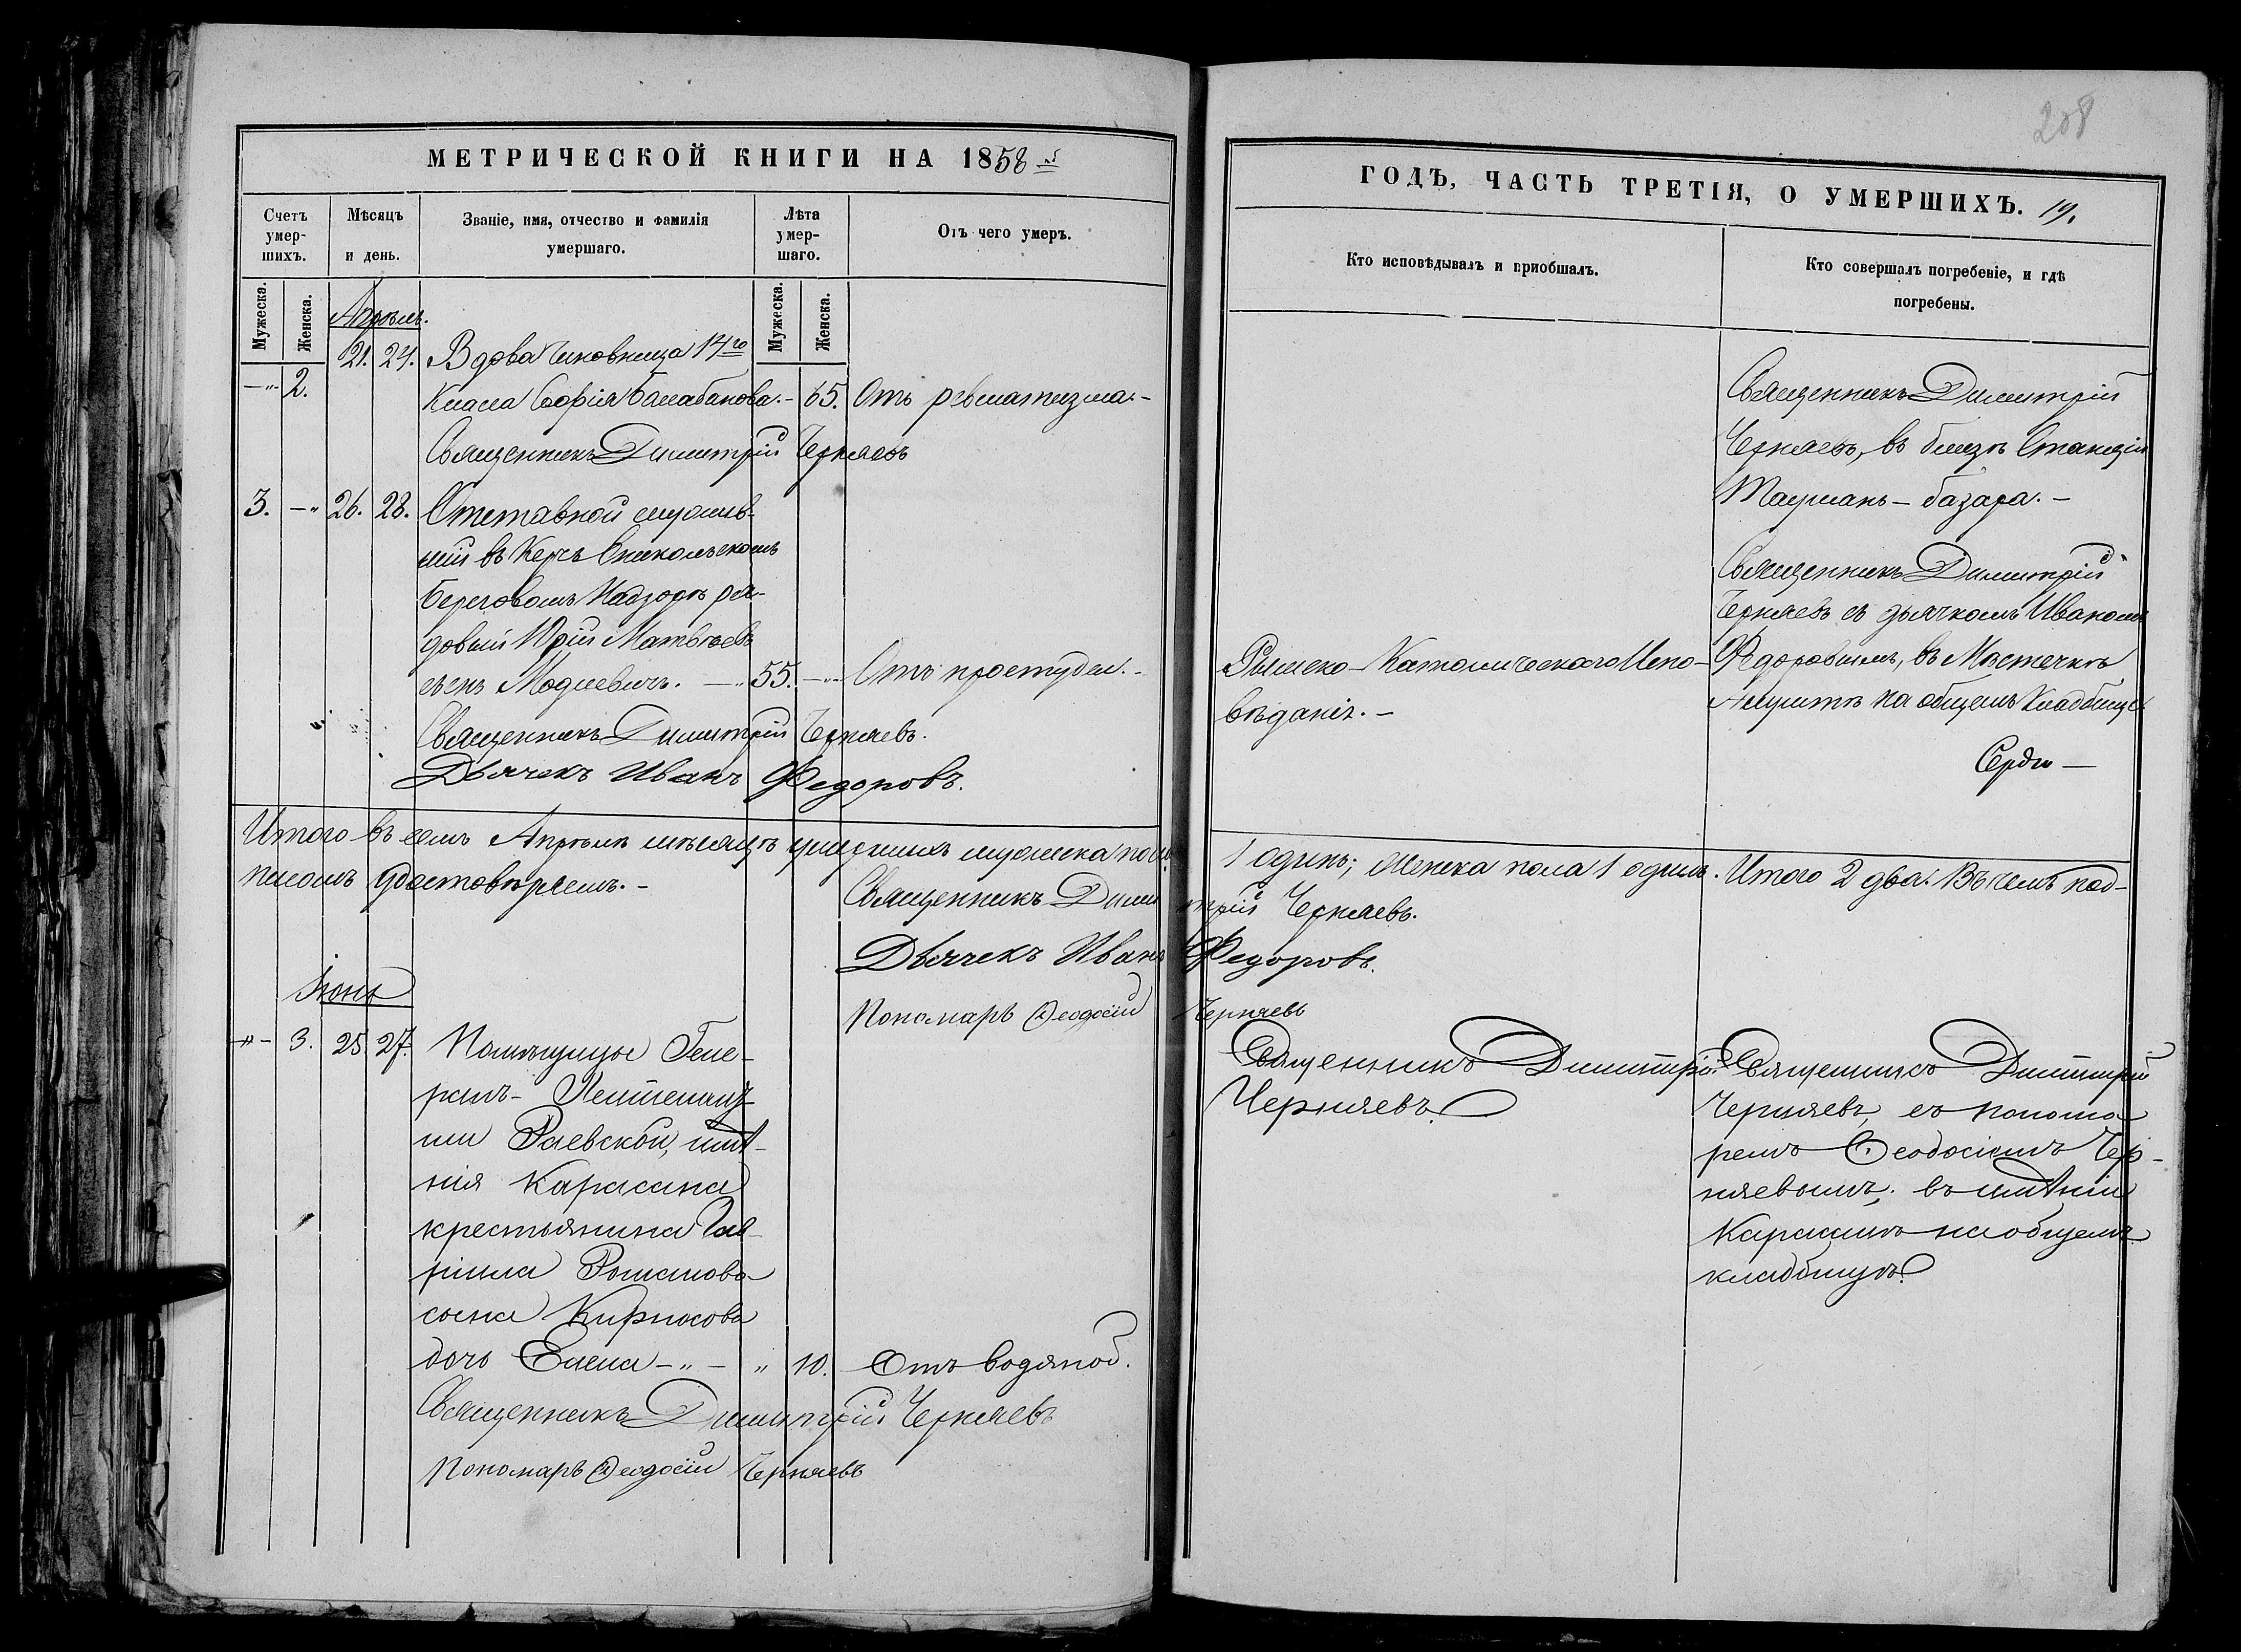 208
МЕТРИЧЕСКОЙ КНИГИ НА 1858й
ГОДЪ, ЧАСТЬ ТРЕТІЯ, О УМЕРШИХЪ. 19.
Счетъ умер-шихъ.
Мужеска.
Женска.
Мѣсяцъ и день.
Званіе, имя, отчество и фамилія умершаго.
Лѣта умер-шаго.
Мужеска.
Женска.
Отъ чего умеръ.
Кто исповѣдывалъ и приобщалъ.
Кто совершалъ погребеніе, и гдѣ погребены.
Апрѣль.
21. 24. Вдова Чиновница 14го
-"- 2. Класса Софія Балабанова.- 65. Отъ ревматизма.-
Священникъ Димитрій Черняевъ
Священникъ Димитрій
Черняевъ, въ близъ Станціи
Таушанъ-базара.-
3. -" 26. 28. Отставной служив-
шій въ Керчь Еникольскомъ
береговомъ Надзорѣ ря-
довый Юрій Матвѣевъ
сынъ Модлевичъ. -" 55. -"- Отъ простуды.-
Священникъ Димитрій Черняевъ.
Дьячекъ Иванъ Федоровъ.
Римско-Католическаго Испо-
вѣданія.-
Священникъ Димитрій
Черняевъ съ дьячкомъ Иваномъ
Федоровымъ, въ Мѣстечкѣ
Алуштѣ на общемъ Кладбищѣ
Итого въ семъ Апрѣлѣ мѣсяцѣ умершихъ мужеска пола 1 одинъ; женска пола 1 одинъ. Итого 2 два. Въ чемъ под-
писомъ удостовѣряемъ.-
Священникъ Димитрій Черняевъ.
Дьячекъ Иванъ Федоровъ.
Пономарь Ѳеодосій Черняевъ
Іюнь
-"- 3. 25. 27. Помѣщицы Гене-
ралъ-Лейтенант-
ши Раевской, имѣ-
нія Карасана
крестьянина Гав-
ріила Романова
сына Кирносова
дочь Елена -"- " 10. Отъ водяной.
Священникъ Димитрій Черняевъ
Пономарь Ѳеодосій Черняевъ
Священникъ Димитрій
Черняевъ.
Священникъ Димитрій
Черняевъ, съ понома
ремъ Ѳеодосіемъ Чер-
няевымъ; въ имѣніи
Карасанъ на общемъ
кладбищѣ.